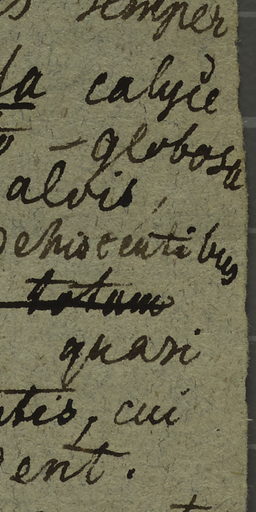 semper
calyce
- globosa
alvis,
Dehiscentibus
totam
quasi
ntis, cui
ent.